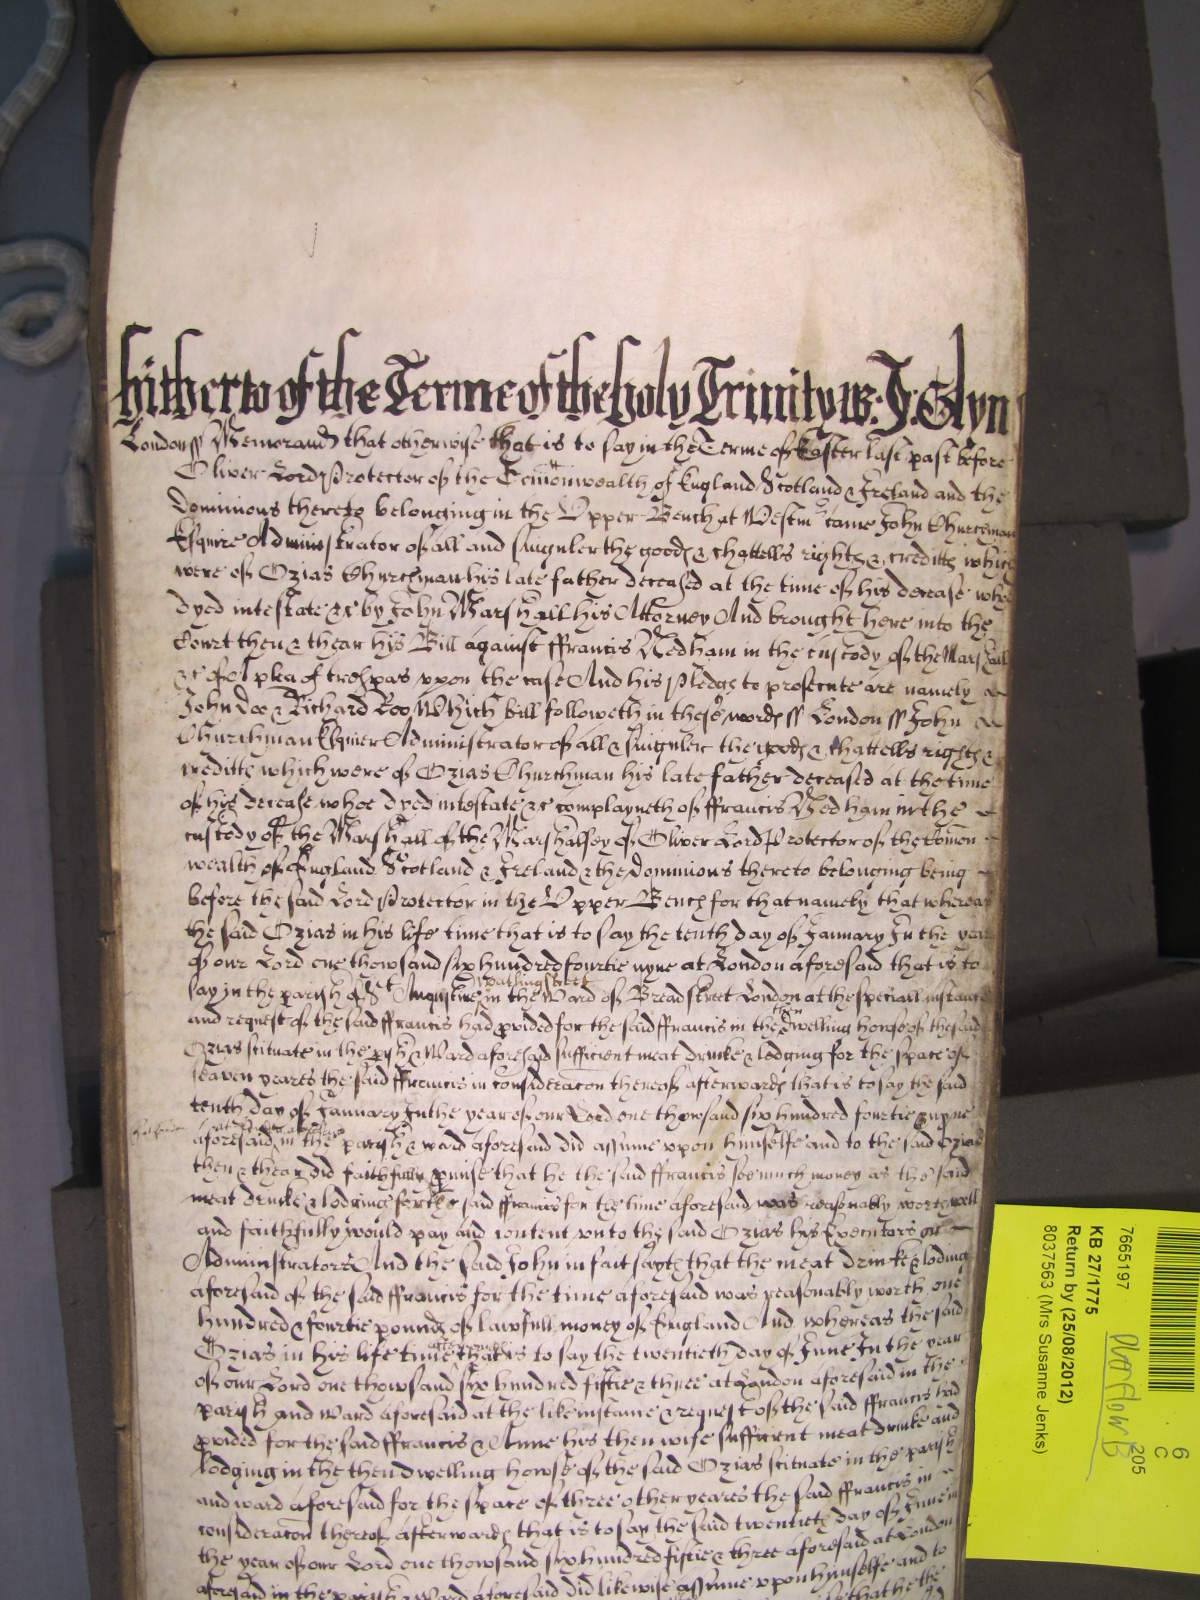 hitherto of the Terme of the holy Trinity w: J: Glyn
London ss Memorand that otherwise that is to say in the Terme of Easter last past before
Oliver Lord Protector of the Comonwealth of England Scotland & Ireland and the
Dominions thereto belonging in the Upper Bench at Westm came John Churchman
Esquire Administrator of all and singuler the goods & chattells rights & creditts which
were of Ozias Churchman his late father deceased at the time of his decease whoe
dyed intestate &c by John Marshall his Attorney And brought here into the
Court then & thear his Bill against ffrancis Nedham in the custody of the Marshall
&c of A plea of trespas upon the case And his pledgs to prosecute are namely
John Doe & Richard Roo Which bill followeth in these words ss London ss John
Churchman Esquier Administrator of all & singuler the goods & chattells rights &
creditts which were of Ozias Churchman his late father deceased at the time
of his decease whoe dyed intestate &c complayneth of ffrancis Nedham in the
custody of the Marshall of the Marshalsey of Oliver Lord Protector of the Comon
wealth of England Scotland & Ireland & the Dominions thereto belonging being
before the said Lord Protector in the Upper Bench for that namely that whereas
the said Ozias in his life time that is to say the tenth day of January In the year
of our Lord one thowsand six hundred fourtie nyne at London aforesaid that is to
say in the parish of St Augustine watlingstreet in the Ward of Breadstreet London at the speciall instance
and request of the said ffrancis had pvided for the said ffrancis in the then dwelling howse of the said
Ozias scituate in the pish & Ward aforesaid sufficient meat drinke & lodging for the space of
seaven yeares the said ffrancis in consideracon thereof afterwards that is to say the said
tenth day of January In the year of our Lord one thowsand six hundred fourtie nyne
aforesaid in the parish & ward aforesaid did assume upon himselfe and to the said Ozias
then & thear did faithfully pmise that he the said ffrancis soe much money as the said
meat drinke & lodging for the said ffrancis for the time aforesaid was reasonably worth well
and faithfully would pay and content unto the said Ozias his Executors or
Administrators And the said John in fait sayth that the meat drinke & lodging
aforesaid of the said ffrancis for the time aforesaid was reasonably worth one
hundred & fourtie pounds of lawfull money of England And whereas the said
Ozias in his life time afterwards that is to say the twentieth day of June In the year
of our Lord one thowsand six hundred fiftie & three at London aforesaid in the
parish and Ward aforesaid at the like instance & request of the said ffrancis had
pvided for the said ffrancis & Anne his then wife sufficient meat drinke and
lodging in the then dwelling howse of the said Ozias scituate in the parish
and ward aforesaid for the space of three other yeares the said ffrancis in
consideracon thereof afterwards that is to say the said twentieth day of June in
the year of our Lord one thowsand six hundred fiftie & three aforesaid at London
aforesaid in the parish & Ward aforesaid did likewise assume upon himselfe and to
7665197
KB 27/1775
Return by (25/08/2012)
8037563 (Mrs Susanne Jenks)
Overflow B
205
6
C